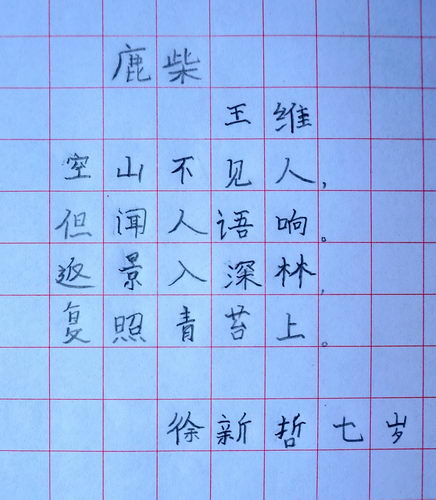 鹿柴
王维
空山不见人，
但闻人语响。
返景入深林，
复照青苔上。
徐新哲七岁